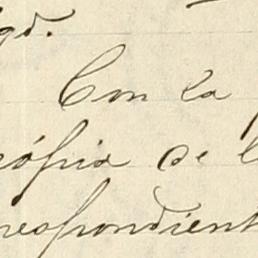 Con la
cópia de l
respondient